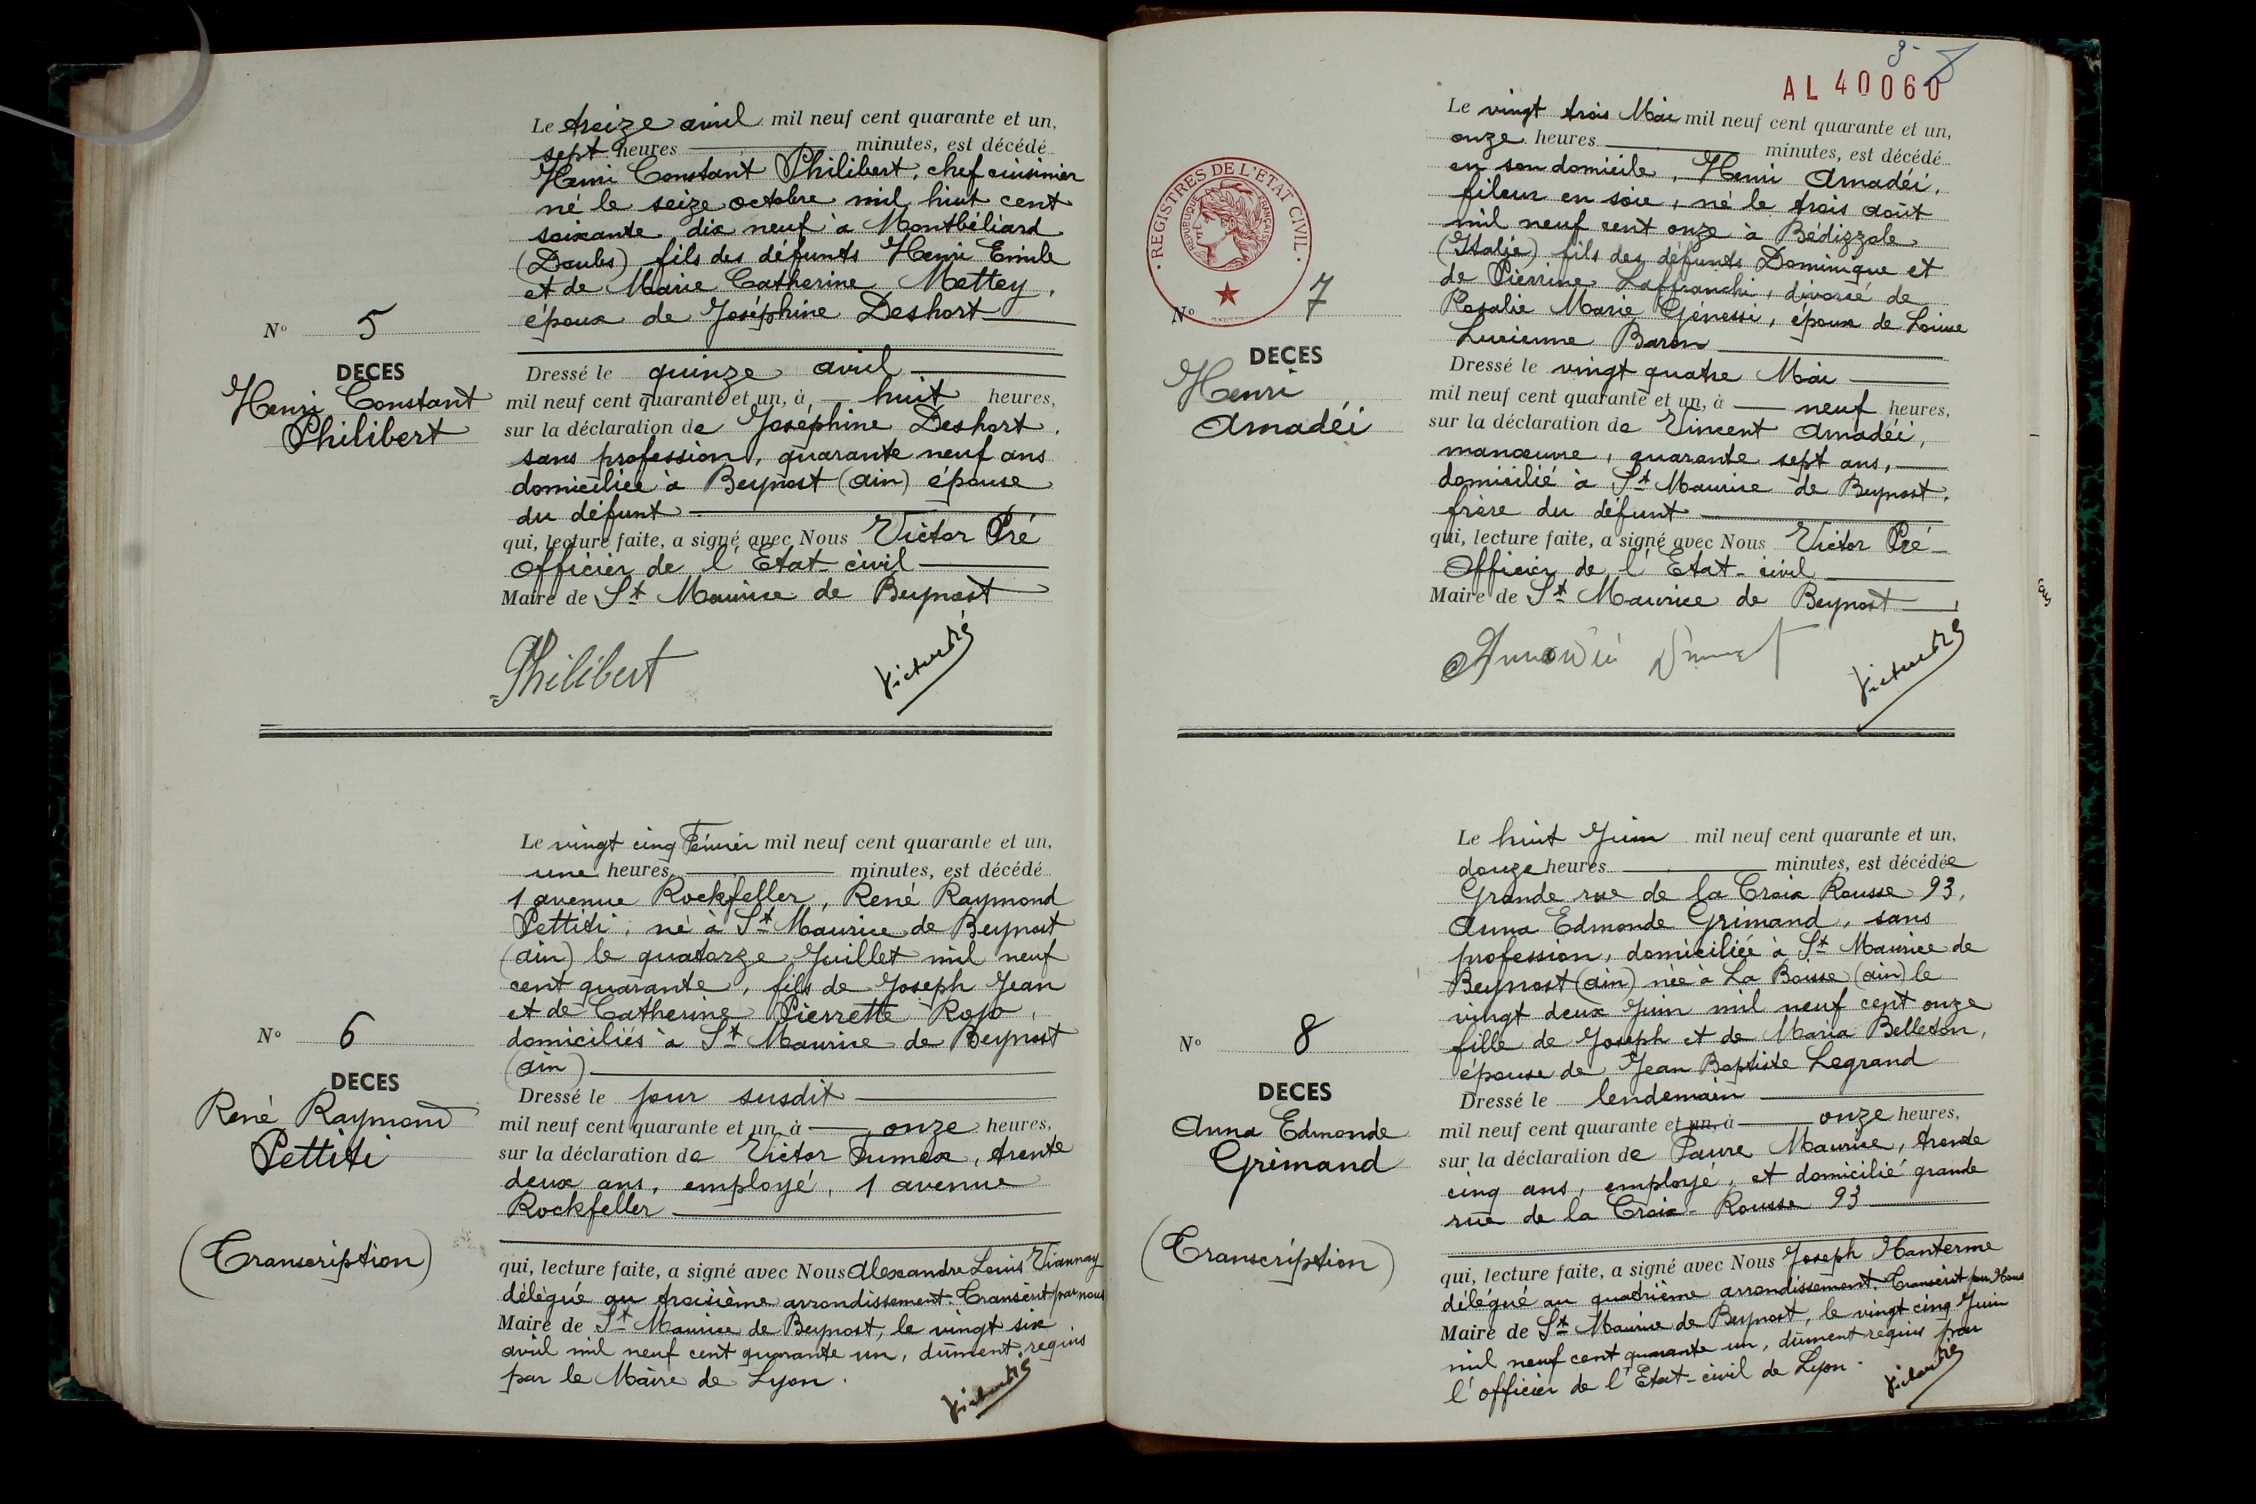 Le treize avril mil neuf cent quarante et un,
sept heures minutes, est décédé
Henri Constant Philibert, chef cuisinier
né le seize octobre mil huit cent
soixante dix neuf à Montbéliard
(Doubs) fils des défunts Henri Emile
et de Marie Catherine Mettey,
époux de Joséphine Deshort
N° 5
DECES
Henri Constant
Philibert
Dressé le quinze avril
mil neuf cent quarante et un, à huit heures,
sur la déclaration de Joséphine Deshort,
sans profession, quarante neuf ans
domiciliée à Beynost (ain) épouse
du défunt
qui, lecture faite, a signé avec Nous Victor Pré
Officier de l'Etat-civil
Maire de St Maurice de Beynost
Philibert
Victor Pré
Le vingt cinq Février mil neuf cent quarante et un,
une heures, minutes, est décédé
1 avenue Rockfeller, René Raymond
Pettiti, né à St Maurice de Beynost
(ain) le quatorze Juillet mil neuf
cent quarante, fils de Joseph Jean
et de Catherine Pierrette Rojo,
domiciliés à St Maurice de Beynost
(ain)
N° 6
DECES
René Raymond
Pettiti
(Transcription)
Dressé le jour susdit
mil neuf cent quarante et un, à onze heures,
sur la déclaration de Victor Dumex, trente
deux ans, employé, 1 avenue
Rockfeller
qui, lecture faite, a signé avec Nous Alexandre Louis Viannay
délégué au troisième arrondissement. Transcrit par nous
Maire de St Maurice de Beynost, le vingt six
avril mil neuf cent quarante un, dûment requis
par le Maire de Lyon.
Victor Pré
AL 40060
Le vingt trois Mai mil neuf cent quarante et un,
onze heures minutes, est décédé
en son domicile, Henri Amadéi,
fileur en soie, né le trois août
mil neuf cent onze à Bédizzole
(Italie) fils des défunts Dominique et
de Pierrine Laffranchi, divorcé de
Rosalie Marie Génessi, époux de Louise
Lucienne Baron
REGISTRES DE L'ETAT CIVIL
REPUBLIQUE FRANÇAISE
N° 7
DECES
Henri
Amadéi
Dressé le vingt quatre Mai
mil neuf cent quarante et un, à neuf heures,
sur la déclaration de Vincent Amadéi,
manœuvre, quarante sept ans,
domicilié à St Maurice de Beynost,
frère du défunt
qui, lecture faite, a signé avec Nous Victor Pré
Officier de l'Etat-civil
Maire de St Maurice de Beynost
Victor Pré
Le huit Juin mil neuf cent quarante et un,
douze heures minutes, est décédée
Grande rue de la Croix Rousse 93,
Anna Edmonde Grimand, sans
profession, domiciliée à St Maurice de
Beynost (ain) née à La Boisse (ain) le
vingt deux Juin mil neuf cent onze
fille de Joseph et de Maria Belleton,
épouse de Jean Baptiste Legrand
N° 8
DECES
Anna Edmonde
Grimand
(Transcription)
Dressé le lendemain
mil neuf cent quarante et un, à onze heures,
sur la déclaration de Faure Maurice, trente
cinq ans, employé, et domicilié grande
rue de la Croix-Rousse 93
qui, lecture faite, a signé avec Nous Joseph Manterme
délégué au quatrième arrondissement. Transcrit par Nous
Maire de St Maurice de Beynost, le vingt cinq Juin
mil neuf cent quarante un, dûment requis par
l'officier de l'Etat-civil de Lyon.
Victor Pré